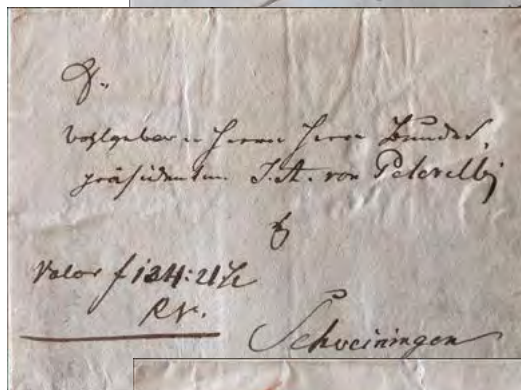 Sr.
wohlgeboren Herrn Herrn Bundes,
präsidenten J. A. von Peterelli
Valor f 134: 21
Schweiningen